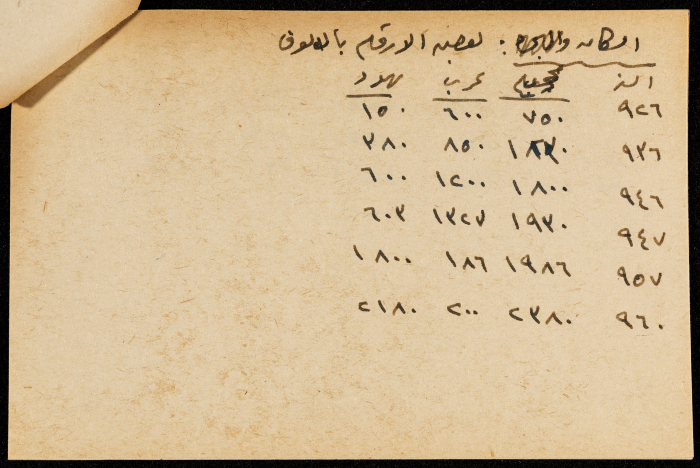 السكان والهجرة : بعض الارقام بالالوف
مجموع عرب يهود
٩٢٦ ٧٥٠ ٦٠٠ ١٥٠
٩٣٦ ١٢٣٠ ٨٥٠ ٣٨٠
٩٤٦ ١٨٠٠ ١٢٠٠ ٦٠٠
٩٤٧ ١٩٣٠ ١٣٢٧ ٦٠٣
٩٥٧ ١٩٨٦ ١٨٦ ١٨٠٠
٩٦٠ ٢٣٨٠ ٢٠٠ ٢١٨٠